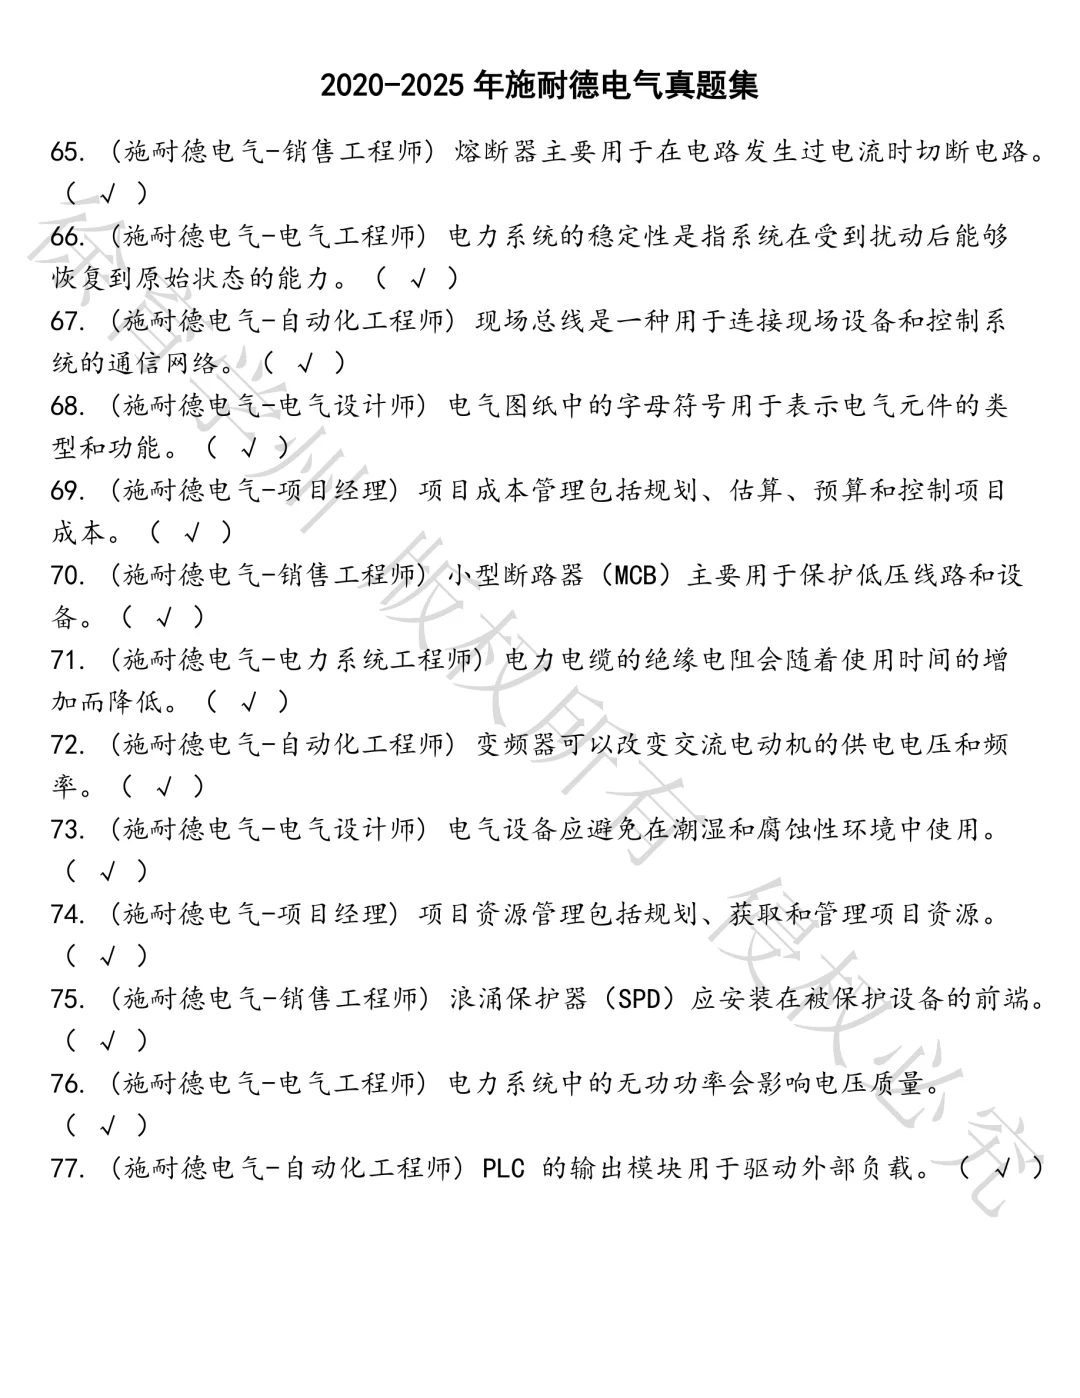 2020-2025年施耐德电气真题集
65. (施耐德电气-销售工程师) 熔断器主要用于在电路发生过电流时切断电路。
（ √ ）
66. (施耐德电气-电气工程师) 电力系统的稳定性是指系统在受到扰动后能够
恢复到原始状态的能力。（ √ ）
67. (施耐德电气-自动化工程师) 现场总线是一种用于连接现场设备和控制系
统的通信网络。（ √ ）
68. (施耐德电气-电气设计师) 电气图纸中的字母符号用于表示电气元件的类
型和功能。（ √ ）
69. (施耐德电气-项目经理) 项目成本管理包括规划、估算、预算和控制项目
成本。（ √ ）
70. (施耐德电气-销售工程师) 小型断路器（MCB）主要用于保护低压线路和设
备。（ √ ）
71. (施耐德电气-电力系统工程师) 电力电缆的绝缘电阻会随着使用时间的增
加而降低。（ √ ）
72. (施耐德电气-自动化工程师) 变频器可以改变交流电动机的供电电压和频
率。（ √ ）
73. (施耐德电气-电气设计师) 电气设备应避免在潮湿和腐蚀性环境中使用。
（ √ ）
74. (施耐德电气-项目经理) 项目资源管理包括规划、获取和管理项目资源。
（ √ ）
75. (施耐德电气-销售工程师) 浪涌保护器（SPD）应安装在被保护设备的前端。
（ √ ）
76. (施耐德电气-电气工程师) 电力系统中的无功功率会影响电压质量。
（ √ ）
77. (施耐德电气-自动化工程师) PLC 的输出模块用于驱动外部负载。（ √ ）
徐育学州 版权所有 侵权必究